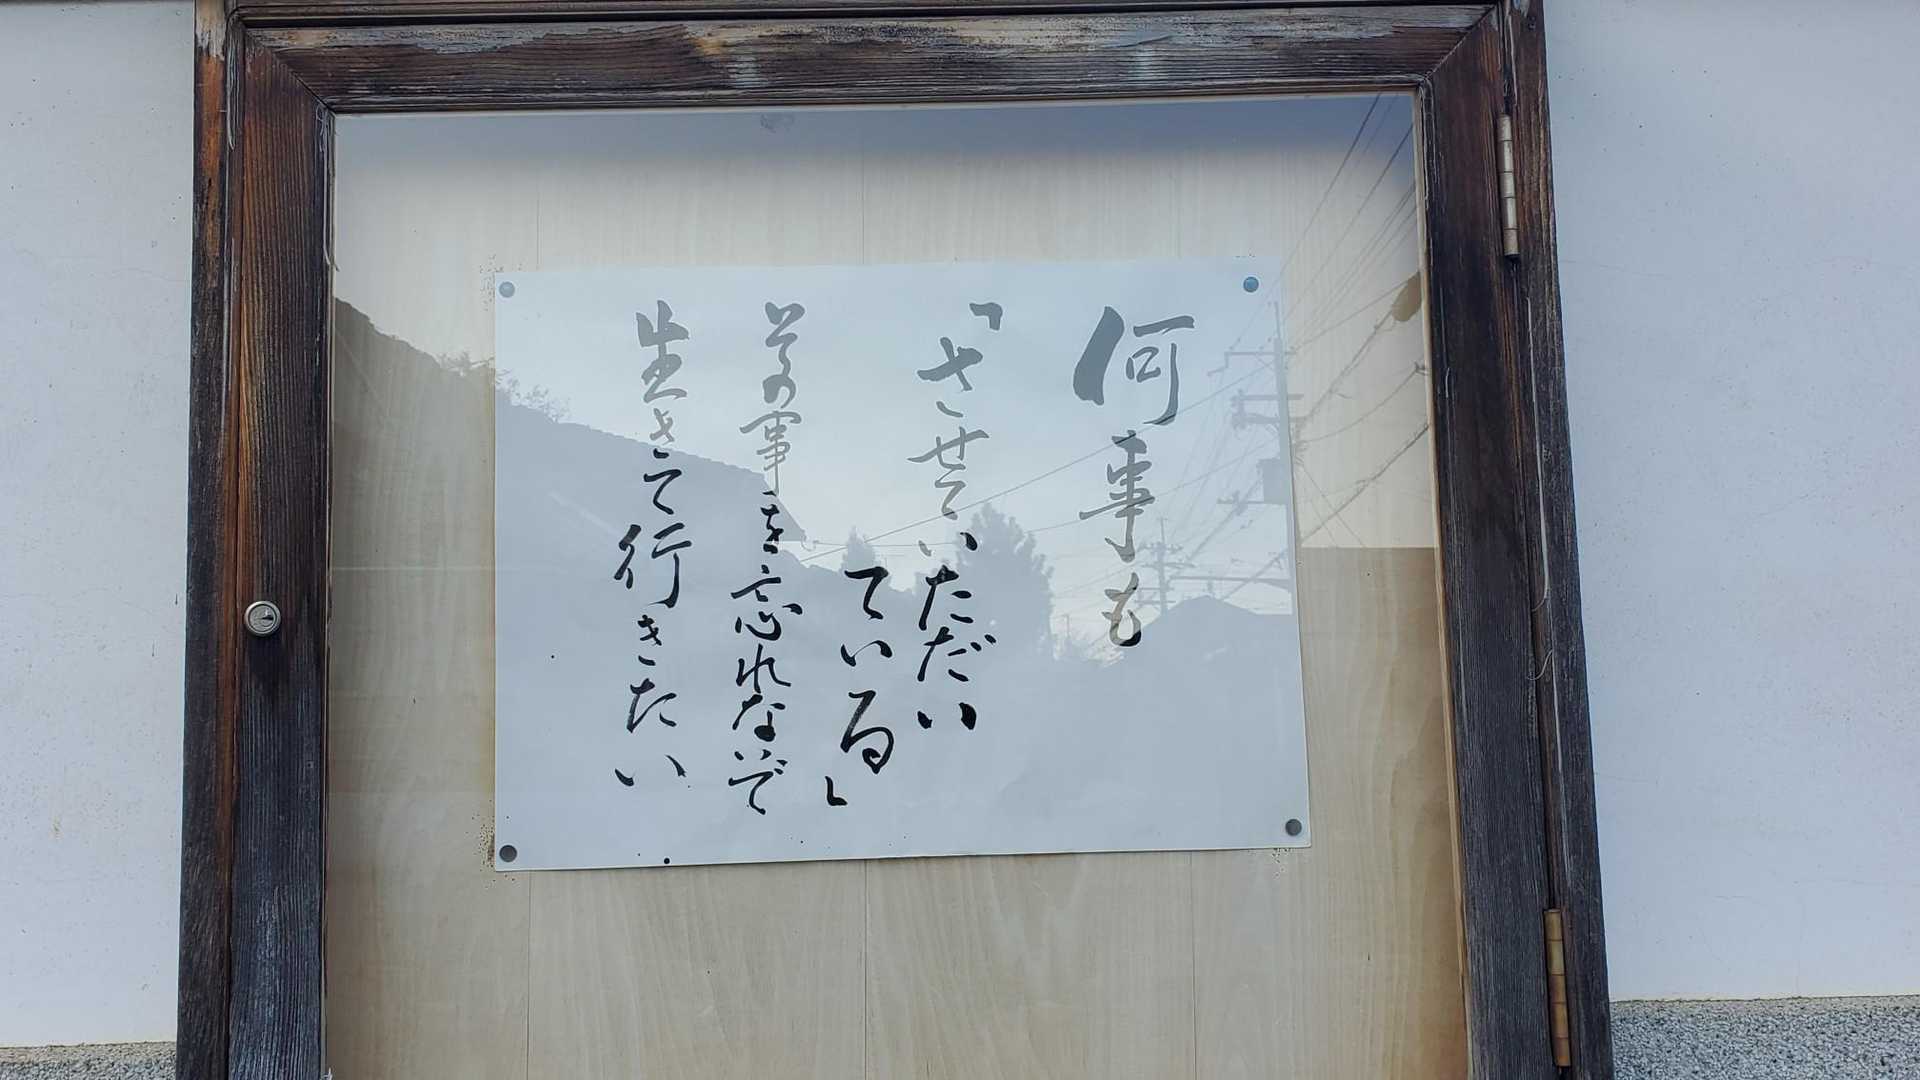 何事も
「させていただい
ている」
その事を忘れないで
生きて行きたい